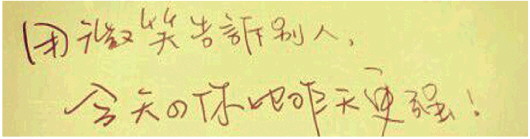 用微笑告訴別人，
今天の你比昨天更强！